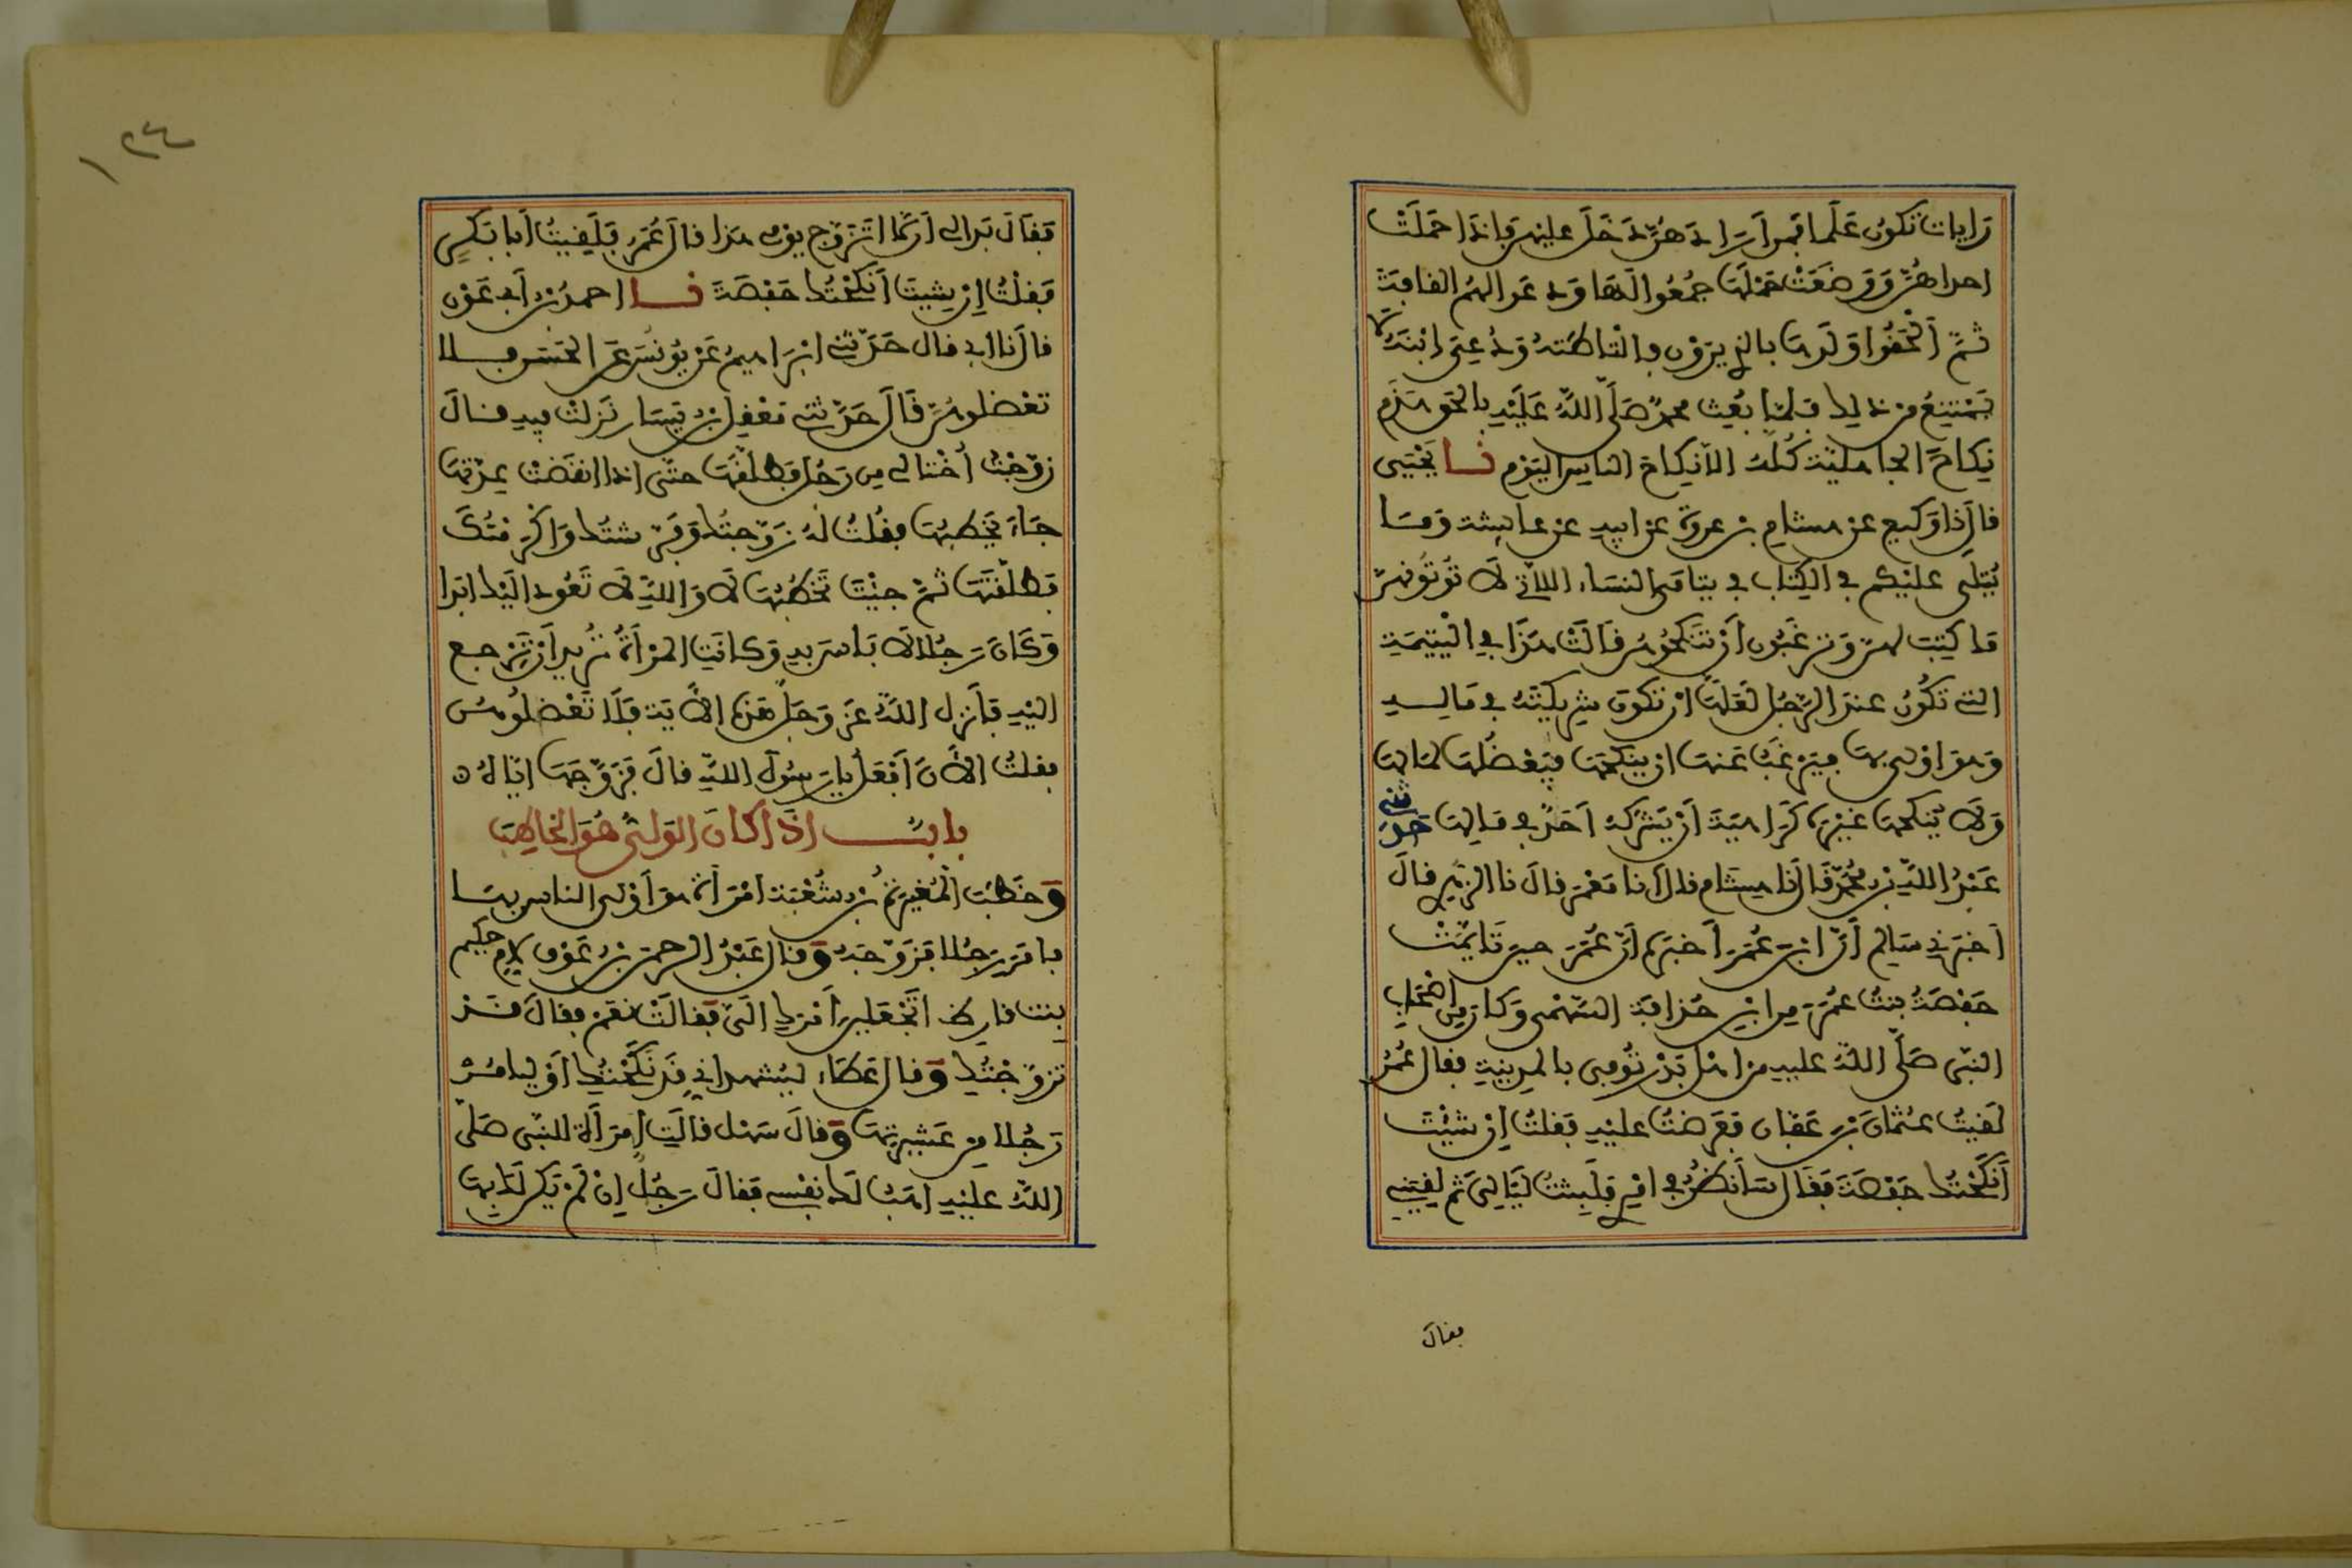 رَايات تكونُ عَلَما فمن أرادهُنّ دَخَلَ عليهن فإذا حَمَلَتْ
احداهُنّ وَوَضَعَتْ حَمْلَها جُمعُوا لها وَدعَوا لهُم القافةَ
ثمّ ألْحَقُوا وَلَدها بالذي يرَوْن فالتاطتهُ وَدُعِيَ ابْنَهُ لا
يَمْتنِعُ من ذلك فلمّا بُعِث محمدٌ صَلّى اللّهُ عَلَيْهِ بالحَق هَدَم
نِكاحَ الجاهليّة كُلّهُ الّا نِكاحَ الناسِ اليَوْم نــا يَحْيَى
قال نا وَكيع عن هشامِ بن عروةَ عن ابيه عن عايشة وَمَا
يُتلَى عليْكم في الكِتاب في يتامَى النسَاء اللّاتي لَا تُوتُونهنّ
مَا كُتِبَ لهنّ وَترغَبُون أنْ تنكحُوهُنّ قَالَتْ هذَا في اليَتيمَةِ
التي تكُونُ عندَ الرّجُل لعَلّها انْ تكونَ شرِيكتَهُ في مَالـــهِ
وَهوَ اوْلى بها فيَرْغَبُ عَنها ان ينكحَهَا فيَعْضُلُها لمَالها
وَلَا يُنكحها غيْرَهُ كَرَاهيَةَ أنْ يَشْركَهُ أحَدٌ في مَالِها حَدّثني
عَبْدُ اللّهِ بن محُمّد قَال نا هِشام قال أنا مَعْمَر قالَ نا الزهري قالَ
أخبَرَني سَالِم أنّ ابنَ عُمَرَ أخبَرَه أنّ عُمَرَ حينَ تَأيّمَتْ
حَفْصَةُ بنتُ عُمَرَ مِن ابْنِ حُذافة السّهْمي وَكان مِن اصْحَابِ
النبّي صَلّى اللّهُ عليهِ من أهل بَدْر تُوفِيَ بالمدينةِ فقال عُمَرُ
لَقيتُ عثمانَ بْن عَفّان فعَرضتُ عليْهِ فقلتُ إنْ شيْتَ
أنْكَحْتُكَ حَفْصَةَ فَقَال سَأنظُرُ في امْرِي فلَبِثْتُ لَيَالِيَ ثم لَقيَني
فقالَ
١٢٤
فقَالَ بَدا لي أن لَّا اتَزَوّج يوْمي هذا قال عُمَر فلَقِيتُ أبا بَكرٍ
فقلْتُ إن شِيتَ أنكَحْتُكَ حَفْصَةَ نــا احمدُ بن أبي عَمْرو
قال نا ابي قال حَدّثني ابْرَاهيمُ عَن يُونُسَ عَن الحَسَن فـــلا
تعْضلوهُنَّ قَالَ حَدّثني مَعْقِل بن يَسَار نَزلتْ فيه قــالَ
زوّجْتُ أُختا لي مِن رَجُل فطلّقَها حتّى إذا انقضَتْ عِدّتهَا
جَاءَ يَخْطبُهَا فقُلتُ لهُ زَوّجتُكَ وَفَرَشتُكَ وَأكْرَمْتُكَ
فطَلّقْتَهَا ثمّ جيْتَ تَخْطُبُها لَا وَاللّهِ لَا تَعُود الَيْكَ ابَدا
وَكَانَ رَجُلا لَا بَاسَ بهِ وَكانَتِ المرْأةُ تُريد أنْ تَرْجع
اليْهِ فأنْزل اللّهُ عَزّ وَجَلّ هَذِهِ الآيَة فَلَا تَعْضلُوهُنّ
فقلتُ الآنَ أفْعَلُ يا رَسُولَ اللّهِ قالَ فَزَوّجَها ايّاهُ ه
بابُــــ اذا كَانَ الوَليّ هُوَ الخَاطِبَ
وَخَطَبَ الْمُغيرةُ بن شُعْبَة امْرَأةً هوَ أوْلى الناس بهَا
فأمَر رَجُلا فزَوّجَهُ وَقال عَبْدُ الرحمن بن عَوْف لأم حكيم
بِنت قارظ أتَجْعَلينَ أمْرَك الَيّ فقالَتْ نعَم فقالَ قَــدْ
تزوّجْتُكِ وَقال عَطاء ليُشهد اني قَدْ نَكَحْتُكِ أوْ ليامُرْ
رَجُلا من عَشيرتِهَا وَقالَ سَهْل قالَتِ امرَأة للنبّي صَلّى
اللّهُ عليْهِ اهَبُ لَك نَفْسي فقالَ رَجُلٌ إن لَمْ تَكن لَك بها